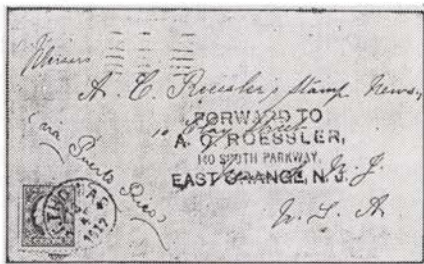 Messrs
A. C. Roessler's Stamp News,
FORWARD TO
A. C. ROESSLER,
140 SOUTH PARKWAY,
EAST ORANGE, N. J.
(via Puerto Rico)
N. J.
U. S. A
1917